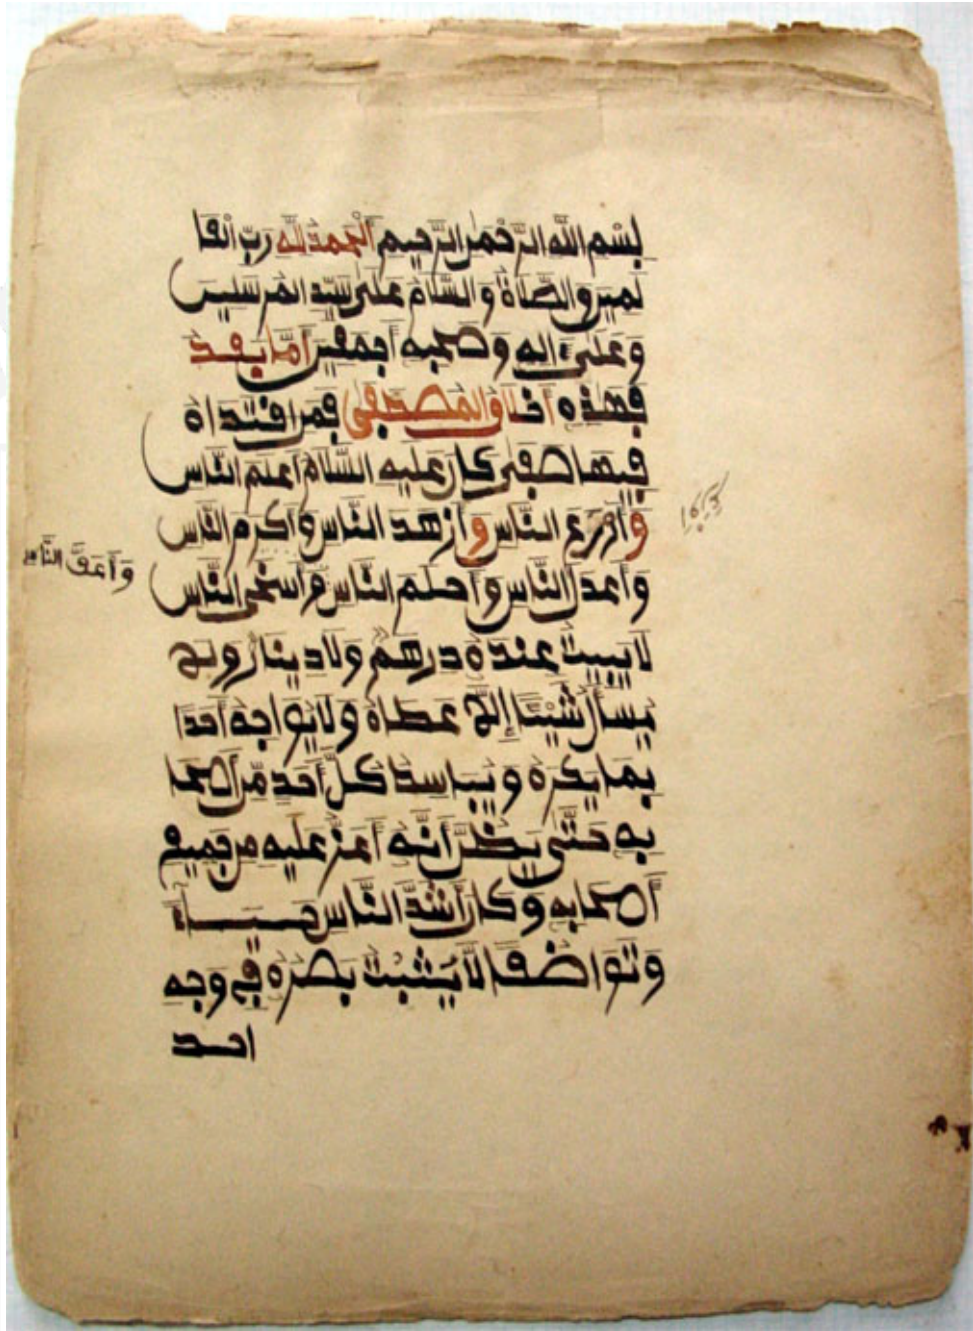 بِسْمِ اللَّهِ الرَّحْمَٰنِ الرَّحِيمِ الْحَمْدُ لِلَّهِ رَبِّ الْعَا
لَمِينَ وَالصَّلَاةُ وَالسَّلَامُ عَلَىٰ سَيِّدِ الْمُرْسَلِينَ
وَعَلَىٰ ءَالِهِ وَصَحْبِهِ أَجْمَعِينَ أَمَّا بَعْدُ
فَهَٰذِهِ أَخْلَاقُ الْمُصْطَفَىٰ فَمَنِ اقْتَدَاهُ
فِيهَا صَفَىٰ كَانَ عَلَيْهِ السَّلَامُ أَعْلَمَ النَّاسِ
وَأَوْرَعَ النَّاسِ وَأَزْهَدَ النَّاسِ وَأَكْرَمَ النَّاسِ
وَأَعْدَلَ النَّاسِ وَأَحْلَمَ النَّاسِ وَأَسْخَى النَّاسِ
وَأَعَفَّ النَّاسِ
لَا يَبِيتُ عِنْدَهُ دِرْهَمٌ وَلَا دِينَارٌ وَلَا
يُسْأَلُ شَيْئًا إِلَّا عَطَاهُ وَلَا يُوَاجِهُ أَحَدًا
بِمَا يَكْرَهُ وَيُبَاسِطُ كُلَّ أَحَدٍ مِّنْ أَصْحَا
بِهِ حَتَّىٰ يَظُنَّ أَنَّهُ أَعَزُّ عَلَيْهِ مِنْ جَمِيعِ
أَصْحَابِهِ وَكَانَ أَشَدَّ النَّاسِ حَيَاءً
وَتَوَاضُعًا لَا يُثْبِتُ بَصَرَهُ فِي وَجْهِ
احد